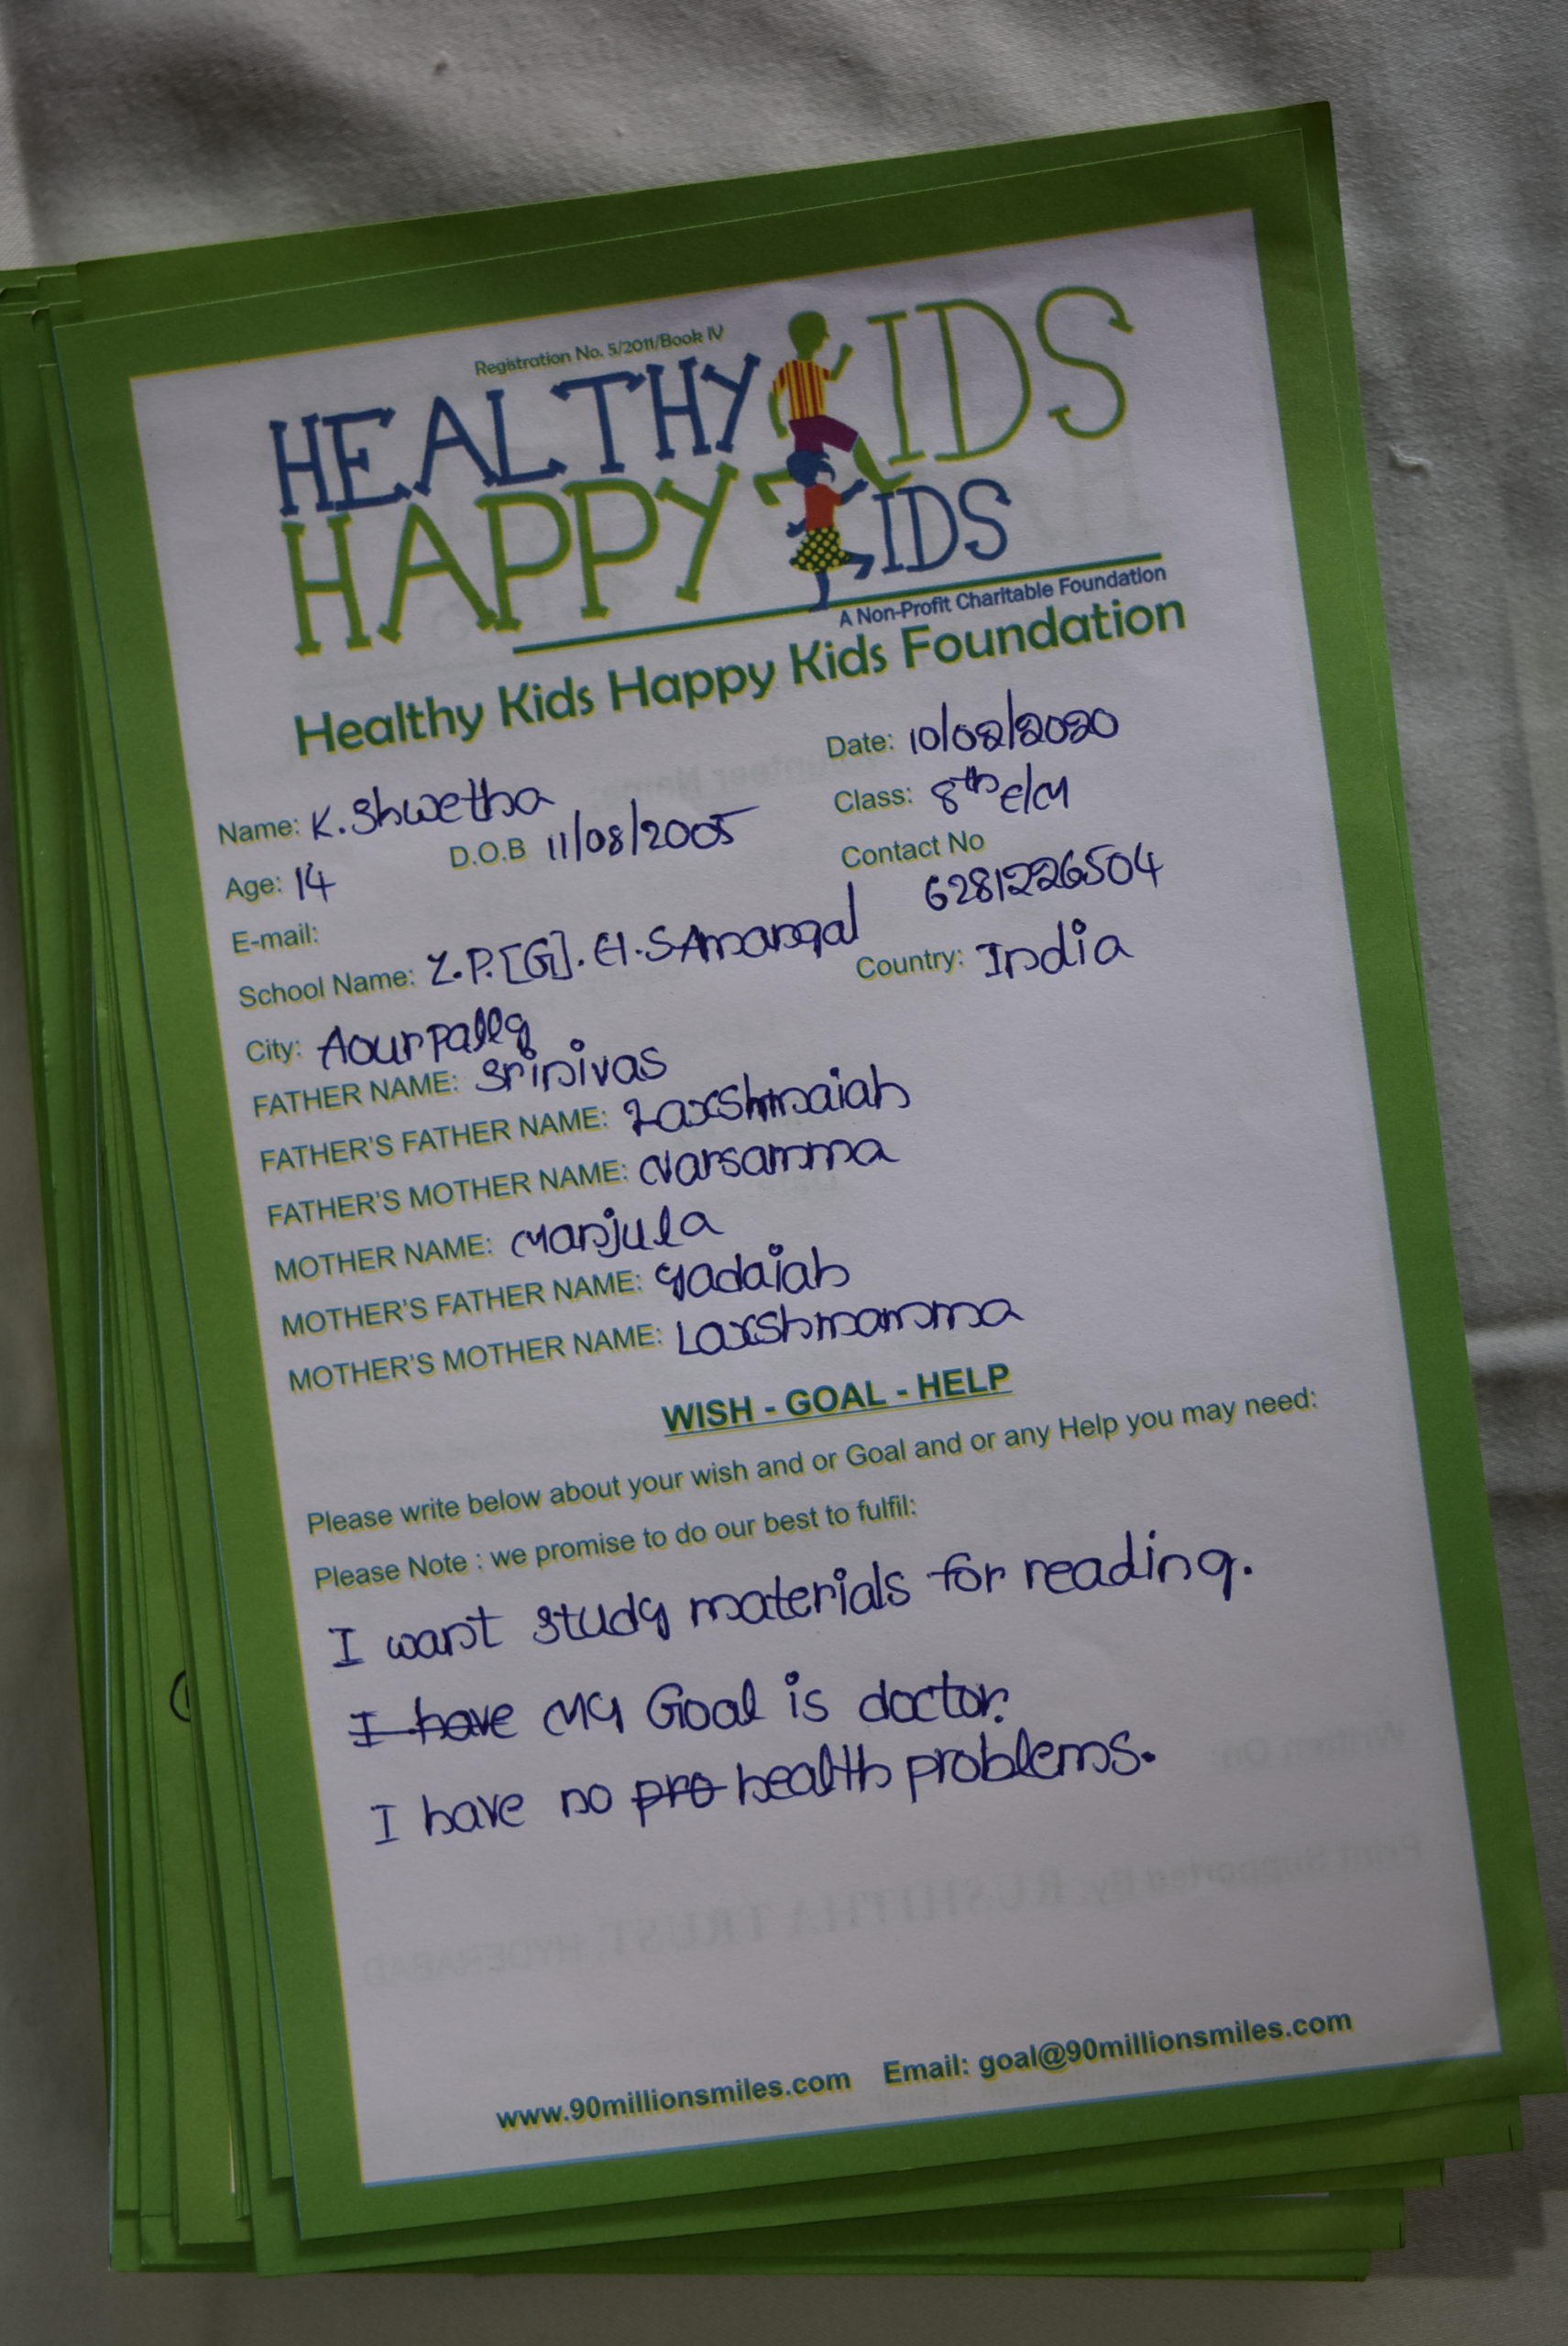 Registration No. 5/2011/Book IV
HEALTHY KIDS
HAPPY KIDS
A Non-Profit Charitable Foundation
Healthy Kids Happy Kids Foundation
Date: 10/02/2020
Name: K. Shwetha
Class: 8th E/M
Age: 14 D.O.B 11/08/2005
Contact No
6281226504
E-mail:
School Name: Z.P.[G]. H.S Amangal
Country: India
City:
FATHER NAME: Srinivas
FATHER'S FATHER NAME: Laxshmaiah
FATHER'S MOTHER NAME: Narsamma
MOTHER NAME: Manjula
MOTHER'S FATHER NAME: Yadaiah
MOTHER'S MOTHER NAME: Laxshmamma
WISH - GOAL - HELP
Please write below about your wish and or Goal and or any Help you may need:
Please Note : we promise to do our best to fulfil:
I want study materials for reading.
I have My Goal is doctor.
I have no pro health problems.
www.90millionsmiles.com Email: goal@90millionsmiles.com